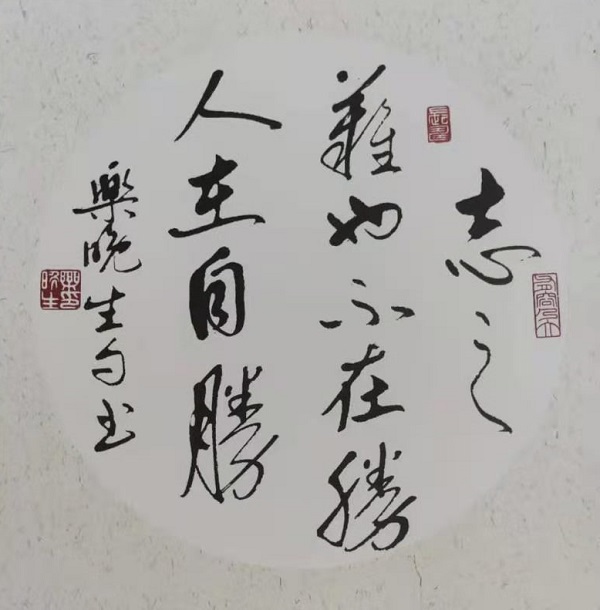 志之
難也不在勝
人在自勝
樂晚生